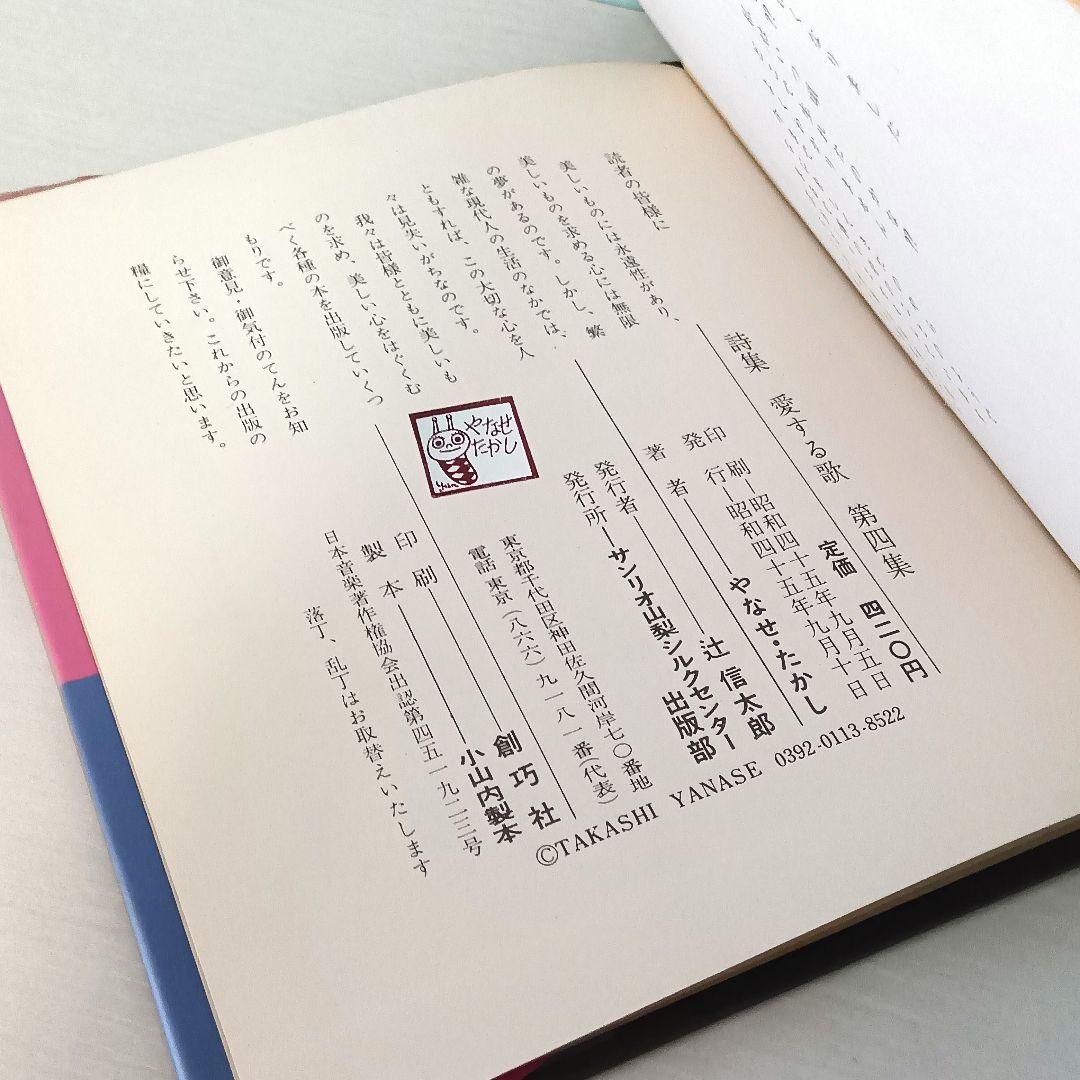 読者の皆様に
美しいものには永遠性があり、
美しいものを求める心には無限
の夢があるのです。しかし、繁
雑な現代人の生活のなかでは、
ともすれば、この大切な心を人
々は見失いがちなのです。
我々は皆様とともに美しいも
のを求め、美しい心をはぐくむ
べく各種の本を出版していくつ
もりです。
御意見・御気付のてんをお知
らせ下さい。これからの出版の
糧にしていきたいと思います。
詩集 愛する歌 第四集
定価 四二〇円
印刷―昭和四十五年九月五日
発行―昭和四十五年九月十日
著者――やなせ・たかし
発行者――辻信太郎
発行所―サンリオ山梨シルクセンター出版部
東京都千代田区神田佐久間河岸七〇番地
電話 東京(八六六)九一八一番(代表)
やなせ
たかし
印刷――創巧社
製本――小山内製本
日本音楽著作権協会出認第四五一九二三号
落丁、乱丁はお取替えいたします
©TAKASHI YANASE 0392-0113-8522